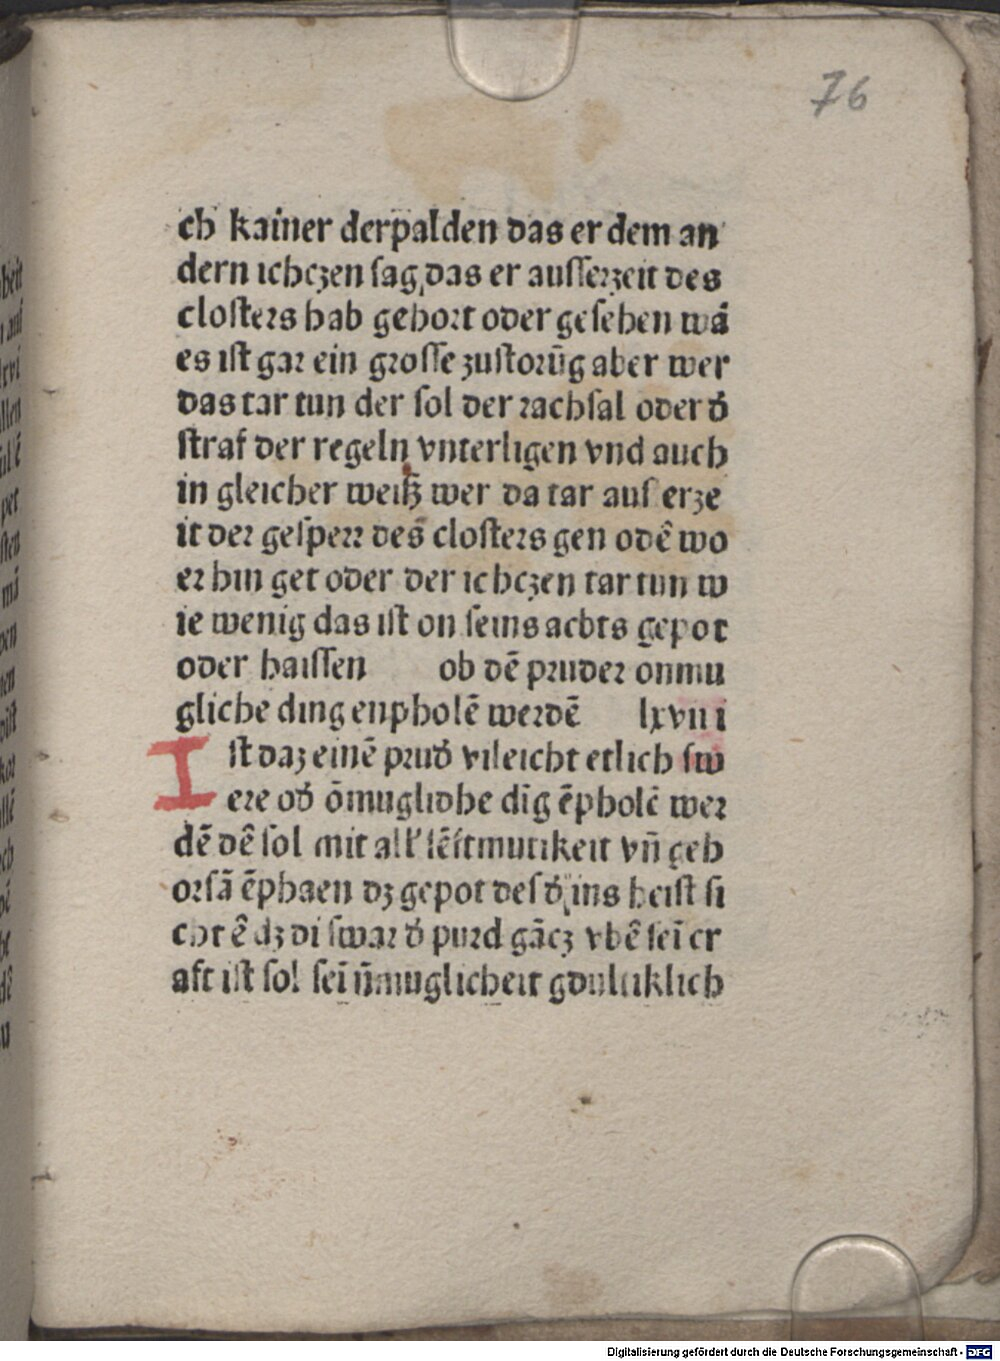 76
ch kainer derpalden das er dem an
dern ichczen sag, das er ausserzeit des
closters hab gehort oder gesehen wā
es ist gar ein grosse zustorūg aber wer
das tar tun der sol der rachsal oder d̄
straf der regeln vnterligen vnd auch
in gleicher weiß wer da tar aus erze
it der gesperr des closters gen odē wo
er hin get oder der ichczen tar tun w
ie wenig das ist on seins achts gepot
oder haissen ob dē pruder onmu
gliche ding enpholē werdē lxviii
Ist daz einē prud̄ vileicht etlich sw
ere od̄ ōmuglidhe dīg ēpholē wer
dē dē sol mit all' sēftmutikeit vn̄ geh
orsā ēphaen dz gepot des d̄ ins heist si
cht ē dz di swar d̄ purd gācz vbē sei cr
aft ist sol sei ūmuglicheit gdultiklich
Digitalisierung gefördert durch die Deutsche Forschungsgemeinschaft - DFG